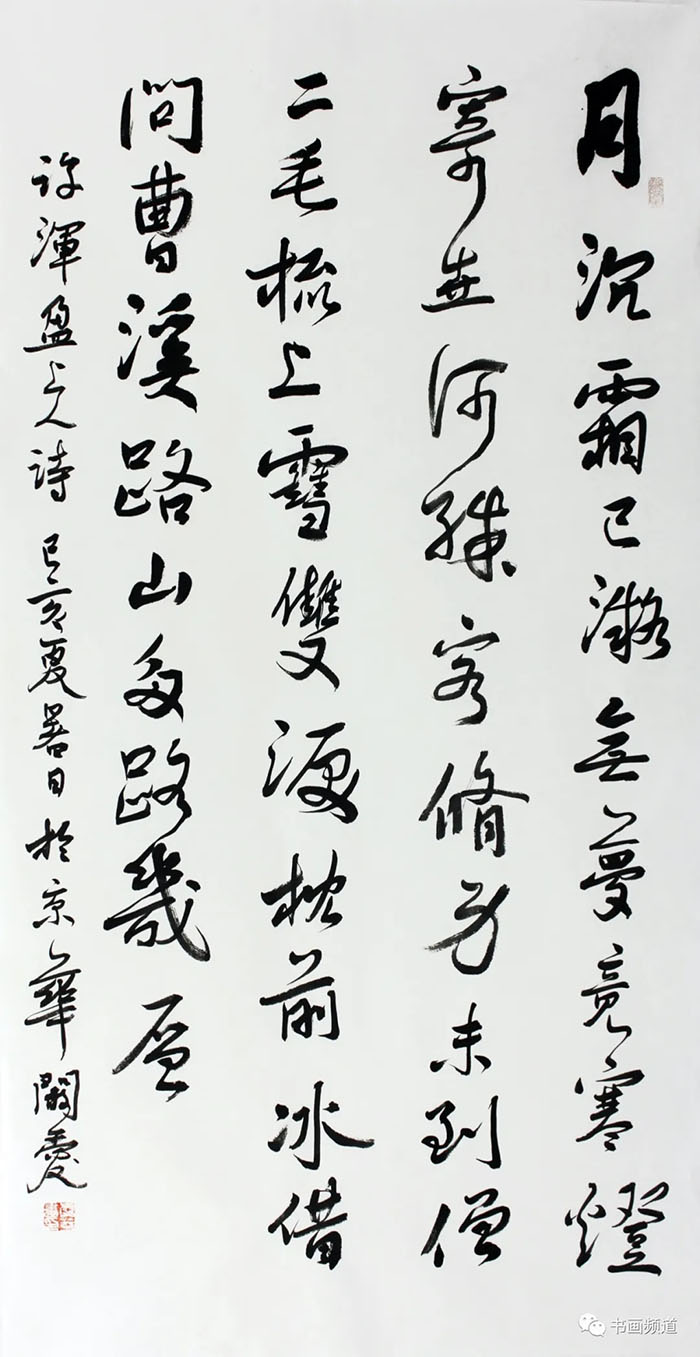 月沉霜已凝無夢竟寒燈
寄世何殊客脩身未到僧
二毛梳上雪雙淚枕前冰借
問曹溪路山多路幾層
許渾盈上人詩 己亥夏暑日於京華
书画频道